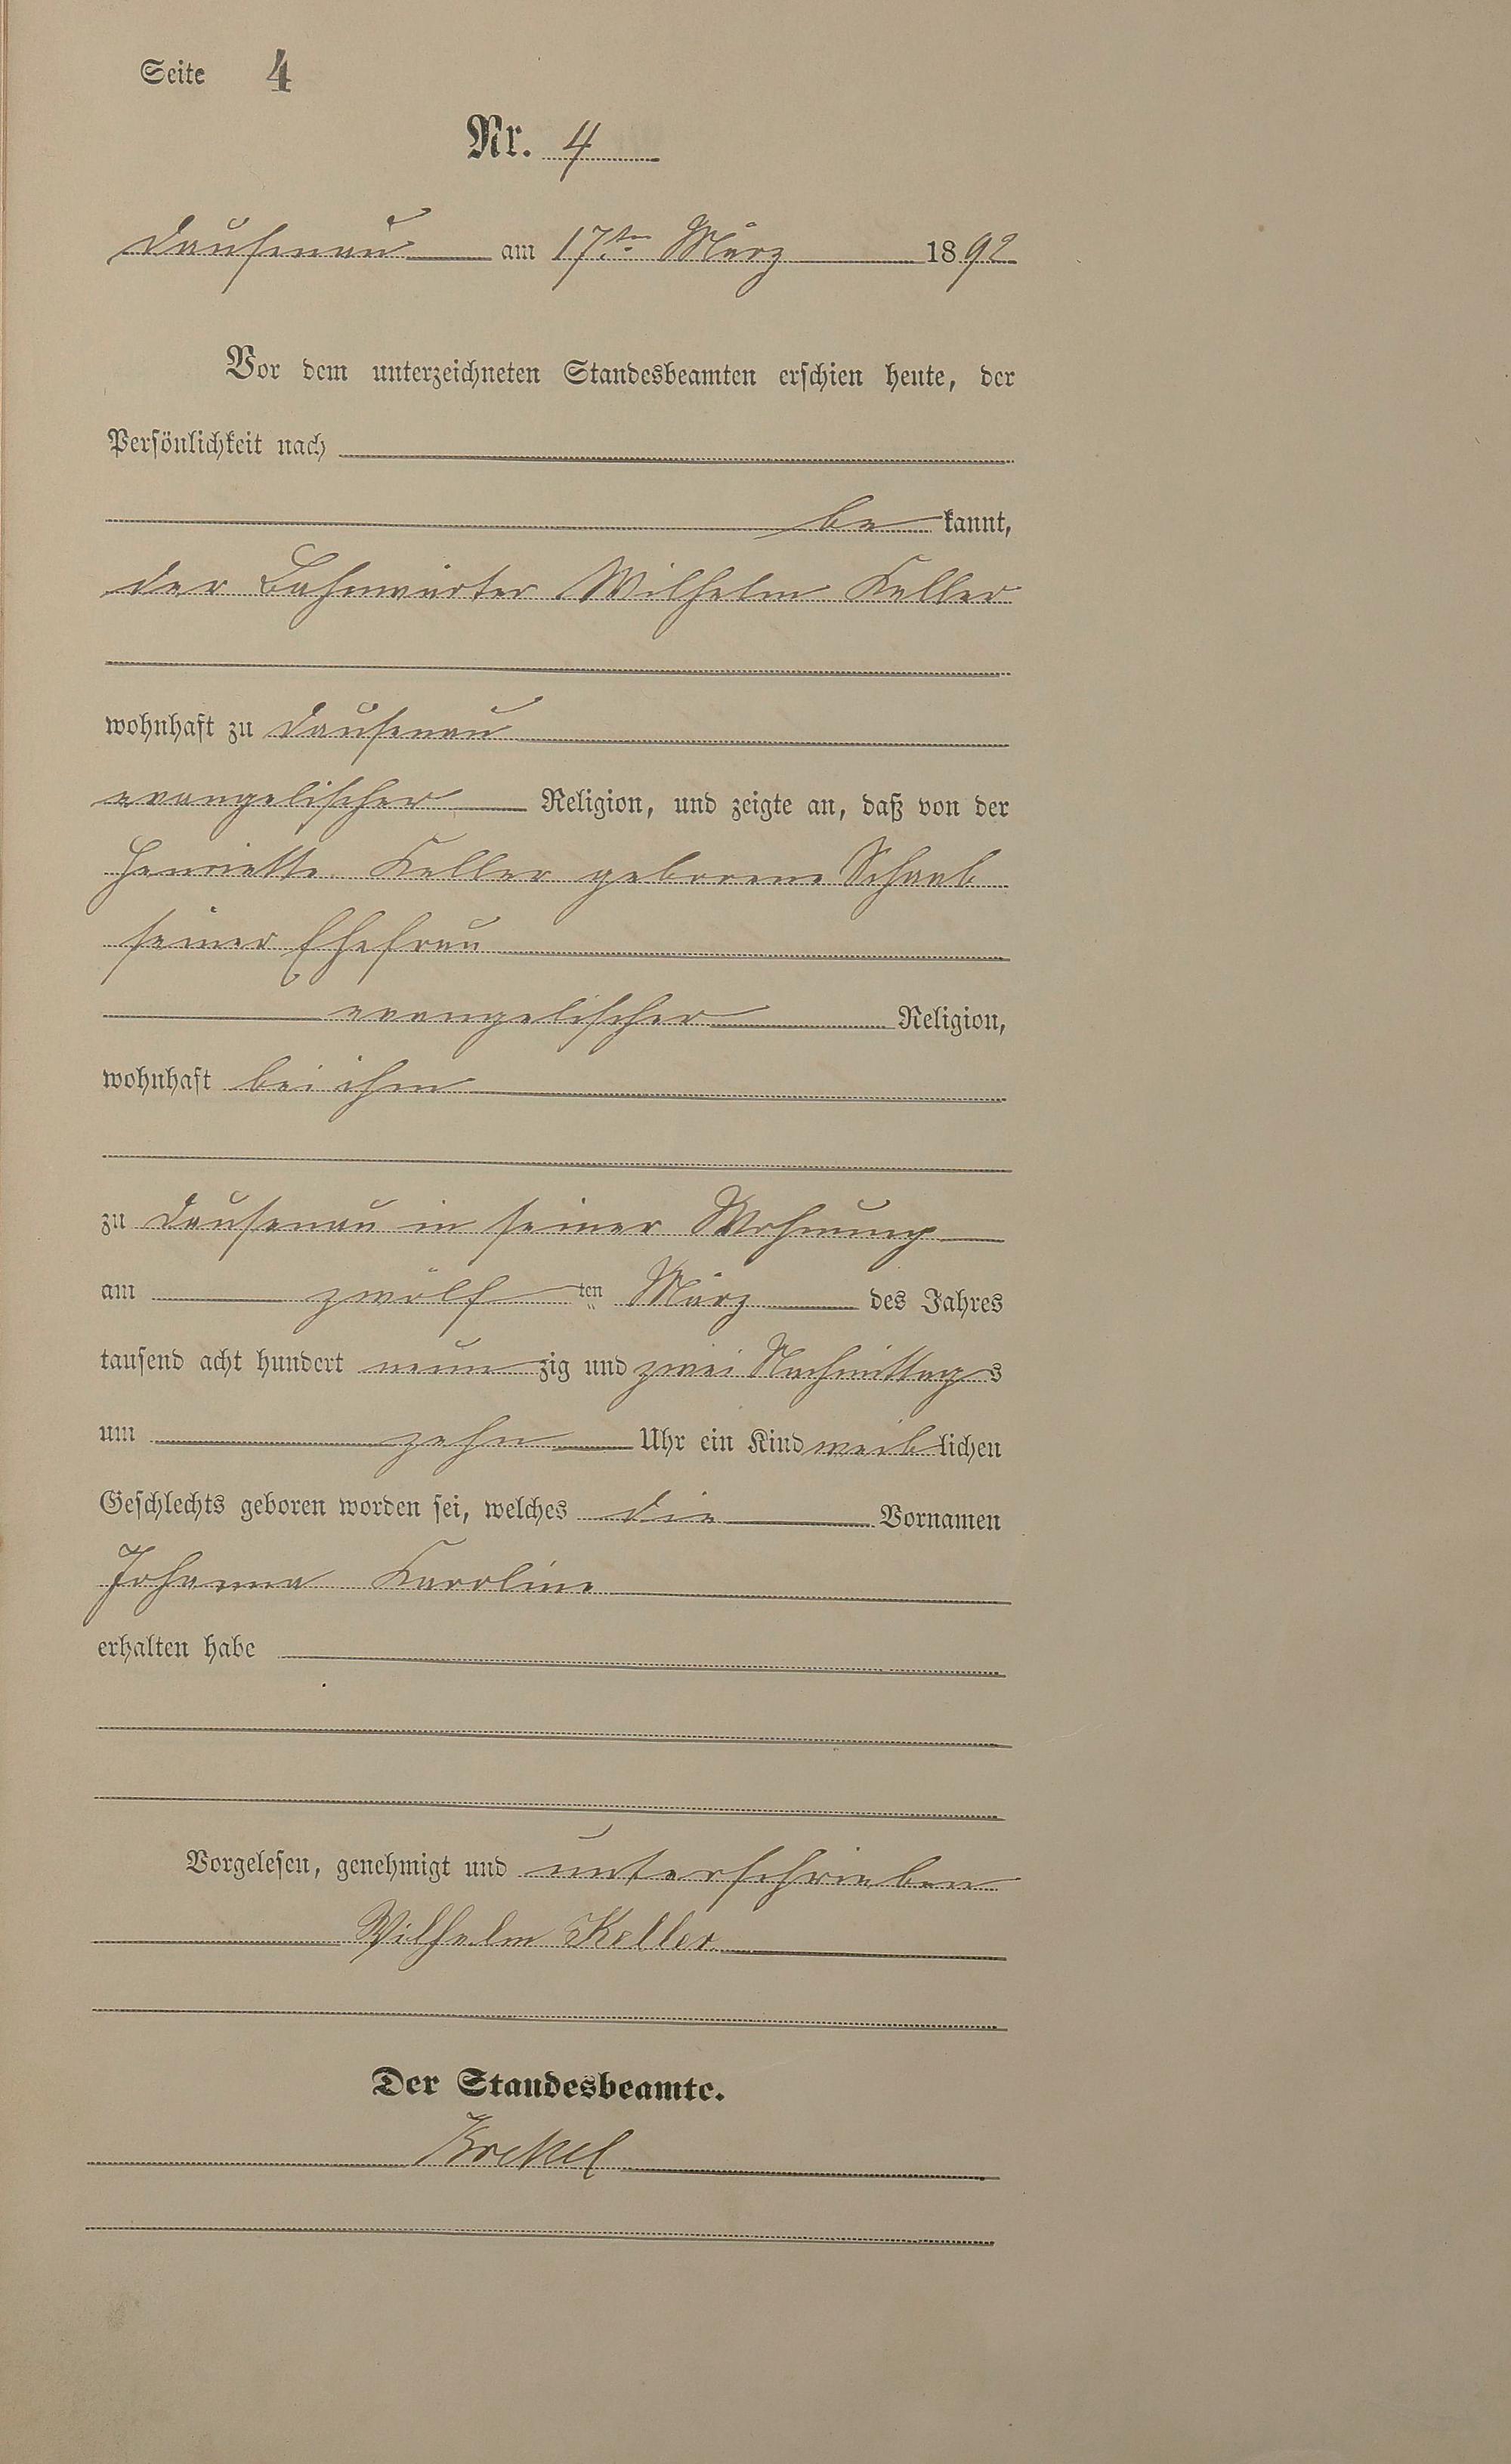 Seite 4
Nr. 4
Dausenau am 17ten März 1892
Vor dem unterzeichneten Standesbeamten erschien heute, der
Persönlichkeit nach
be kannt,
der Bahnwärter Wilhelm Keller
wohnhaft zu Dausenau
evangelischer Religion, und zeigte an, daß von der
Henriette Keller geborene Schaab
seiner Ehefrau
evangelischer Religion,
wohnhaft bei ihm
zu Dausenau in seiner Wohnung
am zwölf ten März des Jahres
tausend acht hundert neun zig und zwei Nachmittags
um zehn Uhr ein Kind weib lichen
Geschlechts geboren worden sei, welches die Vornamen
Johanna Karoline
erhalten habe
Vorgelesen, genehmigt und unterschrieben
Wilhelm Keller
Der Standesbeamte.